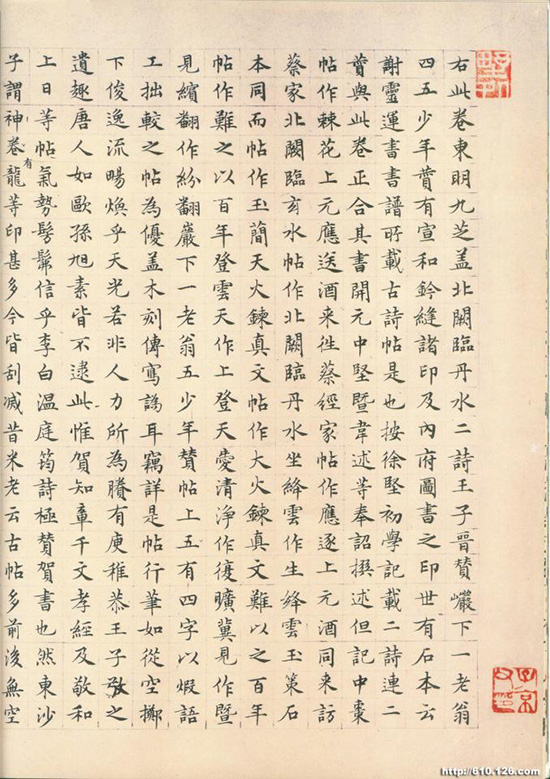 右此卷東明九芝盖北闕臨丹水二詩王子晉賛巗下一老翁
四五少年賛有宣和鈐縫諸印及內府圖書之印世有石本云
謝靈運書書譜所載古詩帖是也按徐堅初學記載二詩連二
賛與此卷正合其書開元中堅暨韋述等奉詔撰述但記中棗
帖作棘花上元應送酒来徃蔡經家帖作應逐上元酒同来訪
蔡家北闕臨玄水帖作北闕臨丹水坐絳雲作生絳雲玉策石
本同而帖作玉簡天火鍊真文帖作大火鍊真文難以之百年
帖作難之以百年登雲天作上登天愛清淨作復曠冀見作暨
見繽翻作紛翻巖下一老翁五少年賛帖上五有四字以煅語
工拙較之帖為優盖木刻傳寫譌耳竊詳是帖行筆如從空擲
下俊逸流暢煥乎天光若非人力所為賸有庾稚恭王子敬之
遺趣唐人如歐孫旭素皆不逮此惟賀知章千文孝經及敬和
上日等帖氣勢髣髴信乎李白温庭筠詩極賛賀書也然東沙
子謂卷有神龍等印甚多今皆刮滅昔米老云古帖多前後無空
http://610.126.com